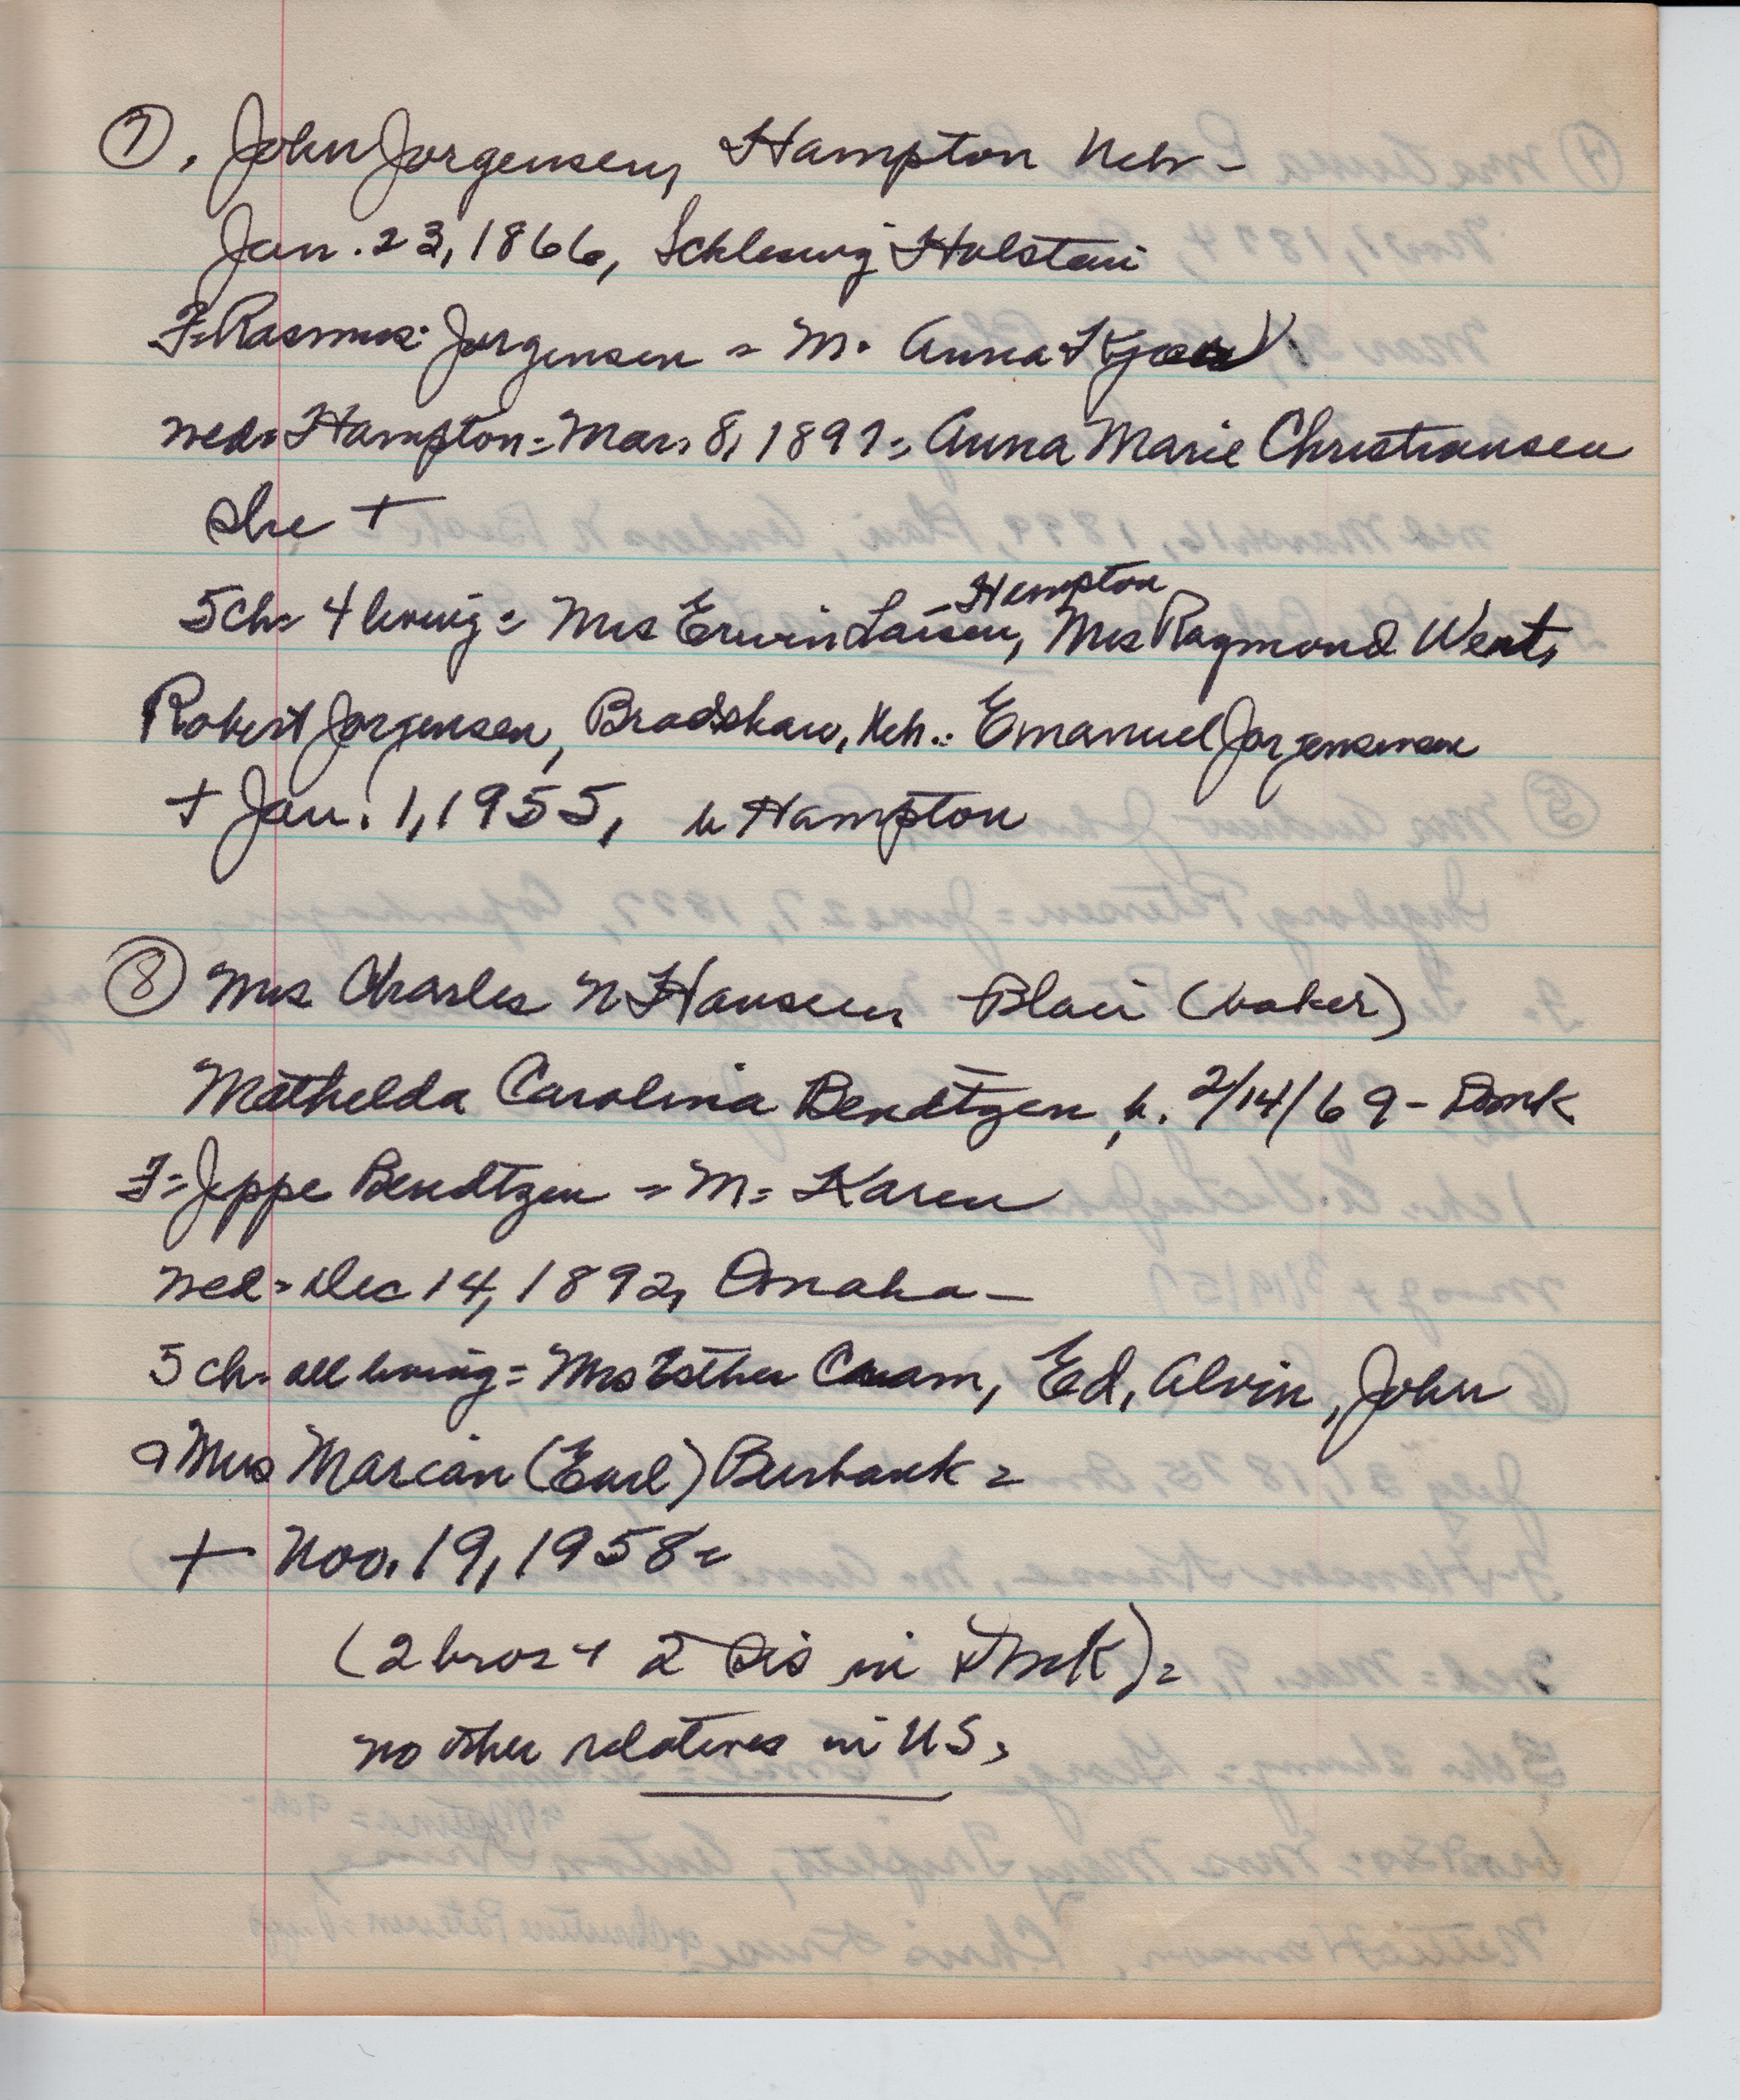 ⑦. John Jorgensen, Hampton Neb -
Jan. 23, 1866, Schleswig Holstein
F= Rasmus Jorgensen = M. Anna
wed= Hampton = Mar. 8, 1891= Anna Marie Christiansen
she +
5 ch= 4 living = Mrs Erwin Larsen, - Hampton Mrs Raymond Went,
Robert Jorgensen, Bradshaw, Neb.: Emanuel Jorgensen
+ Jan. 1, 1955, b Hampton
⑧ Mrs Charles N Hansen Blair (baker)
Mathelda Carolina Bendtzen, b. 2/14/69 - Dmk
F= Jeppe Bendtzen = M= Karen
wed= Dec 14, 1892, Omaha -
5 ch. all living = Mrs Esther Cram, Ed, Alvin, John
& Mrs Marian (Earl) Burbank =
+ Nov. 19, 1958=
(2 bros + 2 Sis in Dmk) =
no other relatives in US.